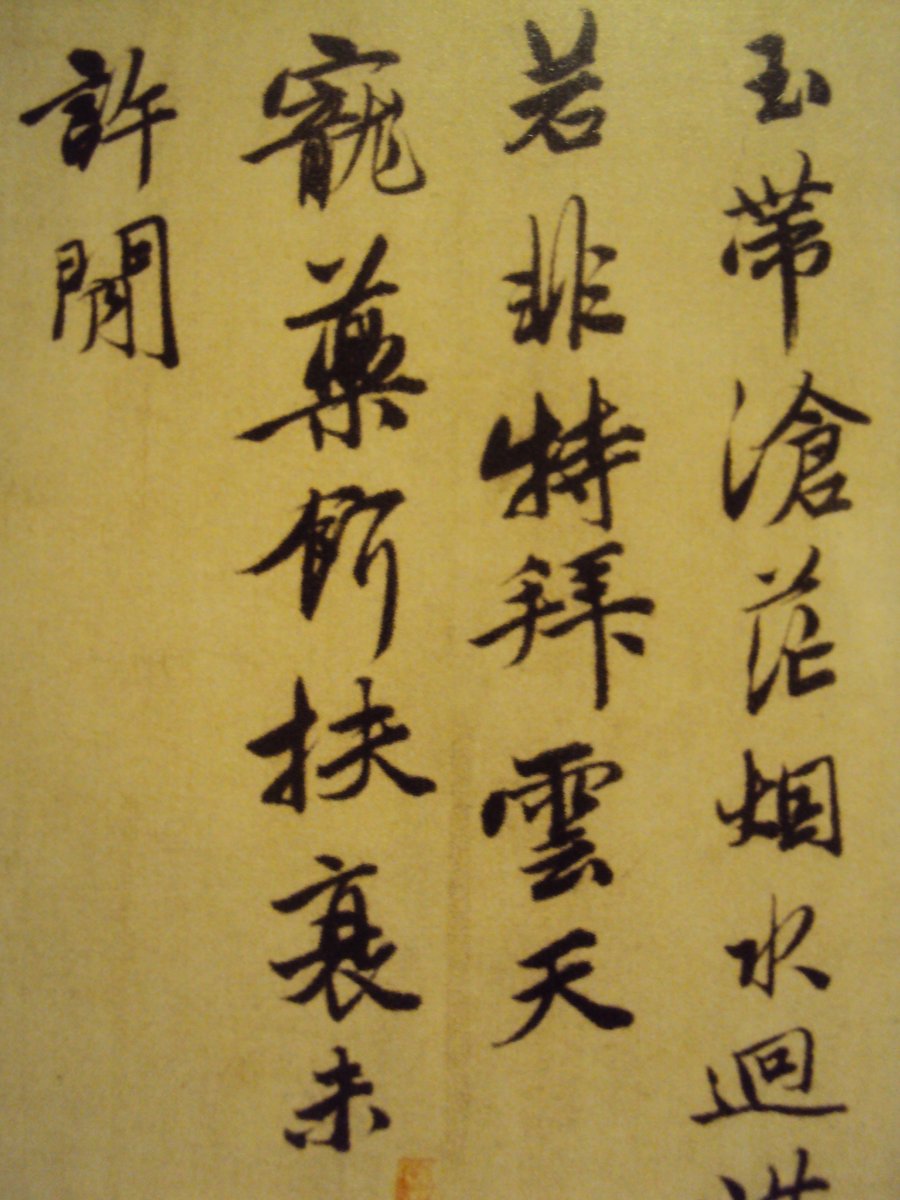 玉帶滄茫烟水迴
若非特拜雲天
寵藥餌扶衰未
許閒